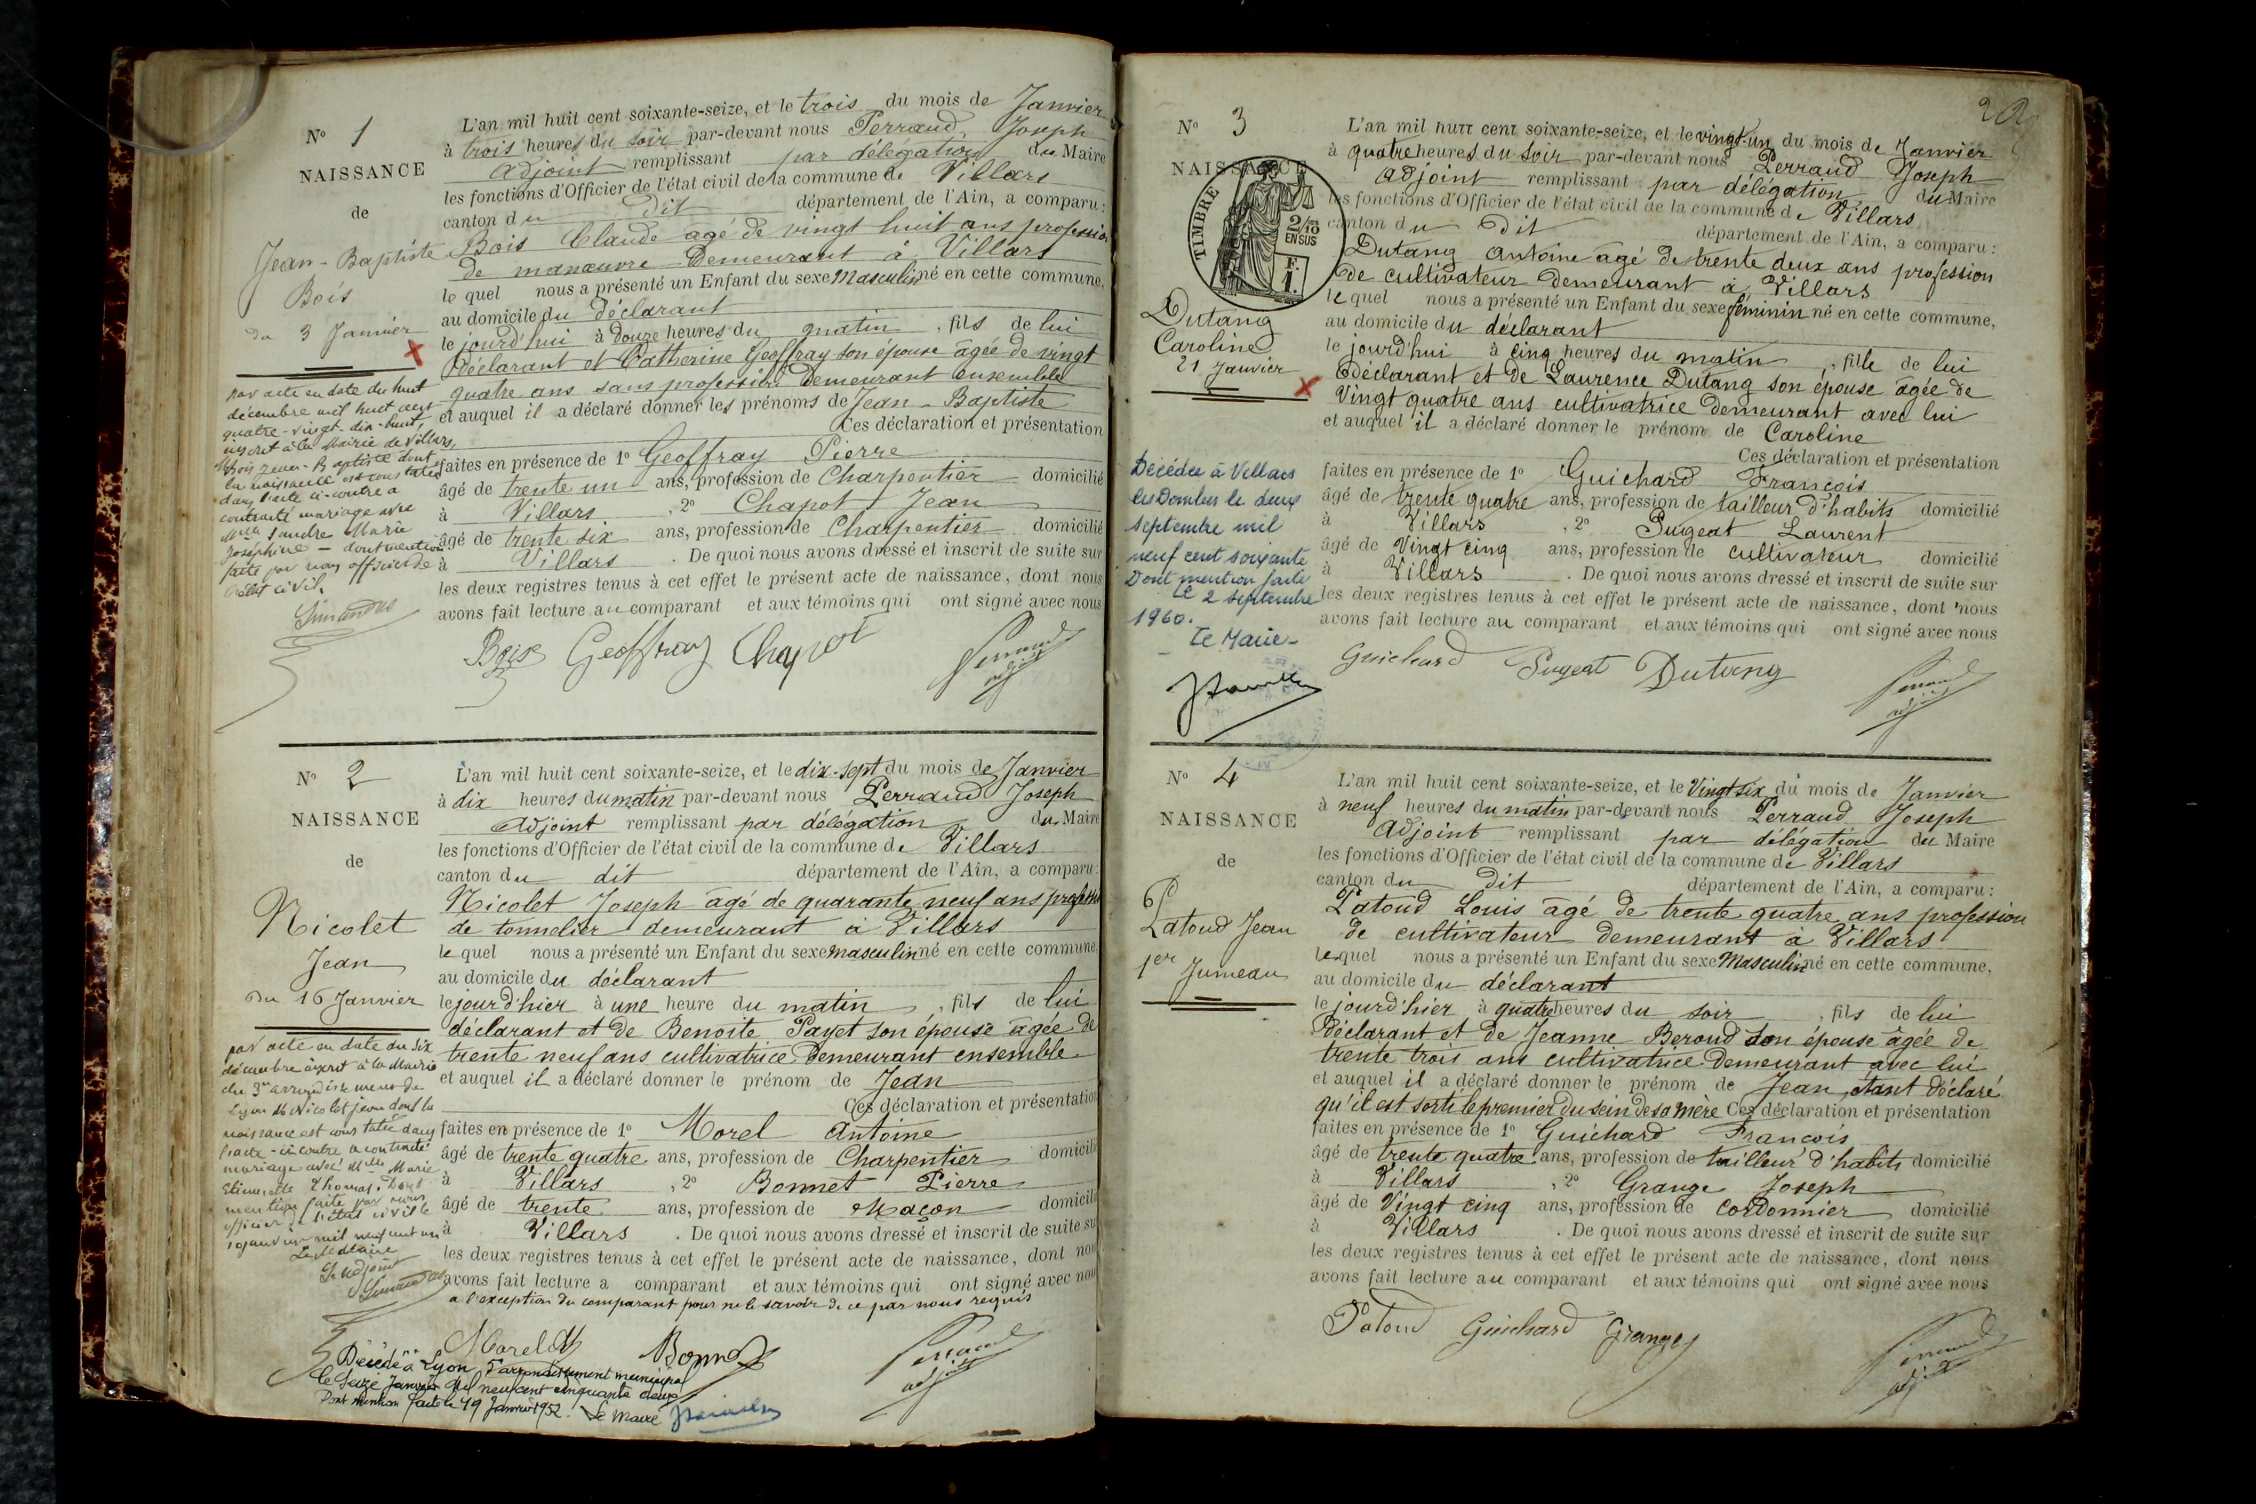 N° 1
NAISSANCE
de
Jean-Baptiste
Bois
du 3 Janvier
par acte en date du huit
décembre mil huit cent
quatre-vingt-dix-huit,
inscrit à la Mairie de Villars,
Mr Bois Jean-Baptiste dont
la naissance est constatée
dans l'acte ci-contre a
contracté mariage avec
Mlle Marie
Joséphine - dont mention
faite par nous officier de
l'état civil.
L'an mil huit cent soixante-seize, et le trois du mois de Janvier
à trois heures du soir par-devant nous Perraud, Joseph
Adjoint remplissant par délégation du Maire
les fonctions d'Officier de l'état civil de la commune de Villars
canton du dit département de l'Ain, a comparu:
Bois Claude agé de vingt huit ans profession
de manœuvre Demeurant à Villars
le quel nous a présenté un Enfant du sexe Masculin né en cette commune,
au domicile du déclarant
le jourd'hui à douze heures du matin, fils de lui
Déclarant et Catherine Geoffray son épouse âgée de vingt
quatre ans sans profession Demeurant ensemble
et auquel il a déclaré donner les prénoms de Jean-Baptiste
Ces déclaration et présentation
faites en présence de 1° Geoffray Pierre
âgé de trente un ans, profession de Charpentier domicilié
à Villars, 2° Chapot Jean
âgé de trente six ans, profession de Charpentier domicilié
à Villars. De quoi nous avons dressé et inscrit de suite sur
les deux registres tenus à cet effet le présent acte de naissance, dont nous
avons fait lecture au comparant et aux témoins qui ont signé avec nous
Bois Geoffray Chapot Perraud adj
N° 2
NAISSANCE
de
Nicolet
Jean
Du 16 Janvier
par acte en date du six
décembre inscrit à la Mairie
du 3me arrondissement de
Lyon Mr Nicolet Jean dont la
naissance est constatée dans
l'acte ci-contre a contracté
mariage avec Mlle Marie
Thomas. Dont
mention faite par nous
officier de l'état civil le
janvier mil neuf cent un
Le Maire
L'adjoint
L'an mil huit cent soixante-seize, et le dix-sept du mois de Janvier
à dix heures du matin par-devant nous Perraud Joseph
Adjoint remplissant par délégation du Maire
les fonctions d'Officier de l'état civil de la commune de Villars
canton du dit département de l'Ain, a comparu:
Nicolet Joseph âgé de quarante neuf ans profession
de tonnelier demeurant à Villars
le quel nous a présenté un Enfant du sexe masculin né en cette commune,
au domicile du déclarant
le jourd'hier à une heure du matin, fils de lui
déclarant et de Benoite Payet son épouse âgée de
trente neuf ans cultivatrice Demeurant ensemble
et auquel il a déclaré donner le prénom de Jean
Ces déclaration et présentation
faites en présence de 1° Morel Antoine
âgé de trente quatre ans, profession de Charpentier domicilié
à Villars, 2° Bonnet Pierre
âgé de trente ans, profession de Maçon domicilié
à Villars. De quoi nous avons dressé et inscrit de suite sur
les deux registres tenus à cet effet le présent acte de naissance, dont nous
avons fait lecture a comparant et aux témoins qui ont signé avec nous
a l'exception du comparant pour ne le savoir de ce par nous requis
Morel Bonnet Perraud adj
Décédé à Lyon 5e arrondissement municipal
le seize Janvier Mil neuf cent cinquante deux
Dont mention faite le 19 Janvier 1952. Le Maire
N° 3
NAISSANCE
TIMBRE
2/10
EN SUS
F.
1.
Dutang
Caroline
21 Janvier
Décédée à Villars
les Dombes le deux
septembre mil
neuf cent soixante
Dont mention faite
le 2 septembre
1960.
Le Maire
202
L'an mil huit cent soixante-seize, et le vingt-un du mois de Janvier
à quatre heures du soir par-devant nous Perraud Joseph
Adjoint remplissant par délégation du Maire
les fonctions d'Officier de l'état civil de la commune de Villars
canton du Dit département de l'Ain, a comparu:
Dutang Antoine âgé de trente deux ans profession
de cultivateur Demeurant à Villars
le quel nous a présenté un Enfant du sexe féminin né en cette commune,
au domicile du déclarant
le jourd'hui à cinq heures du matin, fille de lui
Déclarant et de Laurence Dutang son épouse âgée de
Vingt quatre ans cultivatrice demeurant avec lui
et auquel il a déclaré donner le prénom de Caroline
Ces déclaration et présentation
faites en présence de 1° Guichard François
âgé de trente quatre ans, profession de tailleur d'habits domicilié
à Villars, 2° Pugeat Laurent
âgé de Vingt cinq ans, profession de cultivateur domicilié
à Villars. De quoi nous avons dressé et inscrit de suite sur
les deux registres tenus à cet effet le présent acte de naissance, dont nous
avons fait lecture au comparant et aux témoins qui ont signé avec nous
Guichard Pugeat Dutang Perraud adj
N° 4
NAISSANCE
de
Patoud Jean
1er Jumeau
L'an mil huit cent soixante-seize, et le Vingt six du mois de Janvier
à neuf heures du matin par-devant nous Perraud Joseph
Adjoint remplissant par délégation du Maire
les fonctions d'Officier de l'état civil de la commune de Villars
canton du Dit département de l'Ain, a comparu:
Patoud Louis âgé de trente quatre ans profession
de cultivateur demeurant à Villars
le quel nous a présenté un Enfant du sexe Masculin né en cette commune,
au domicile du déclarant
le jourd'hier à quatre heures du soir, fils de lui
Déclarant et de Jeanne Beroud son épouse âgée de
trente trois ans cultivatrice Demeurant avec lui
et auquel il a déclaré donner le prénom de Jean, étant déclaré
qu'il est sorti le premier du sein de sa mère Ces déclaration et présentation
faites en présence de 1° Guichard François
âgé de trente quatre ans, profession de tailleur d'habits domicilié
à Villars, 2° Grange Joseph
âgé de Vingt cinq ans, profession de Cordonnier domicilié
à Villars. De quoi nous avons dressé et inscrit de suite sur
les deux registres tenus à cet effet le présent acte de naissance, dont nous
avons fait lecture au comparant et aux témoins qui ont signé avec nous
Patoud Guichard Grange Perraud adj